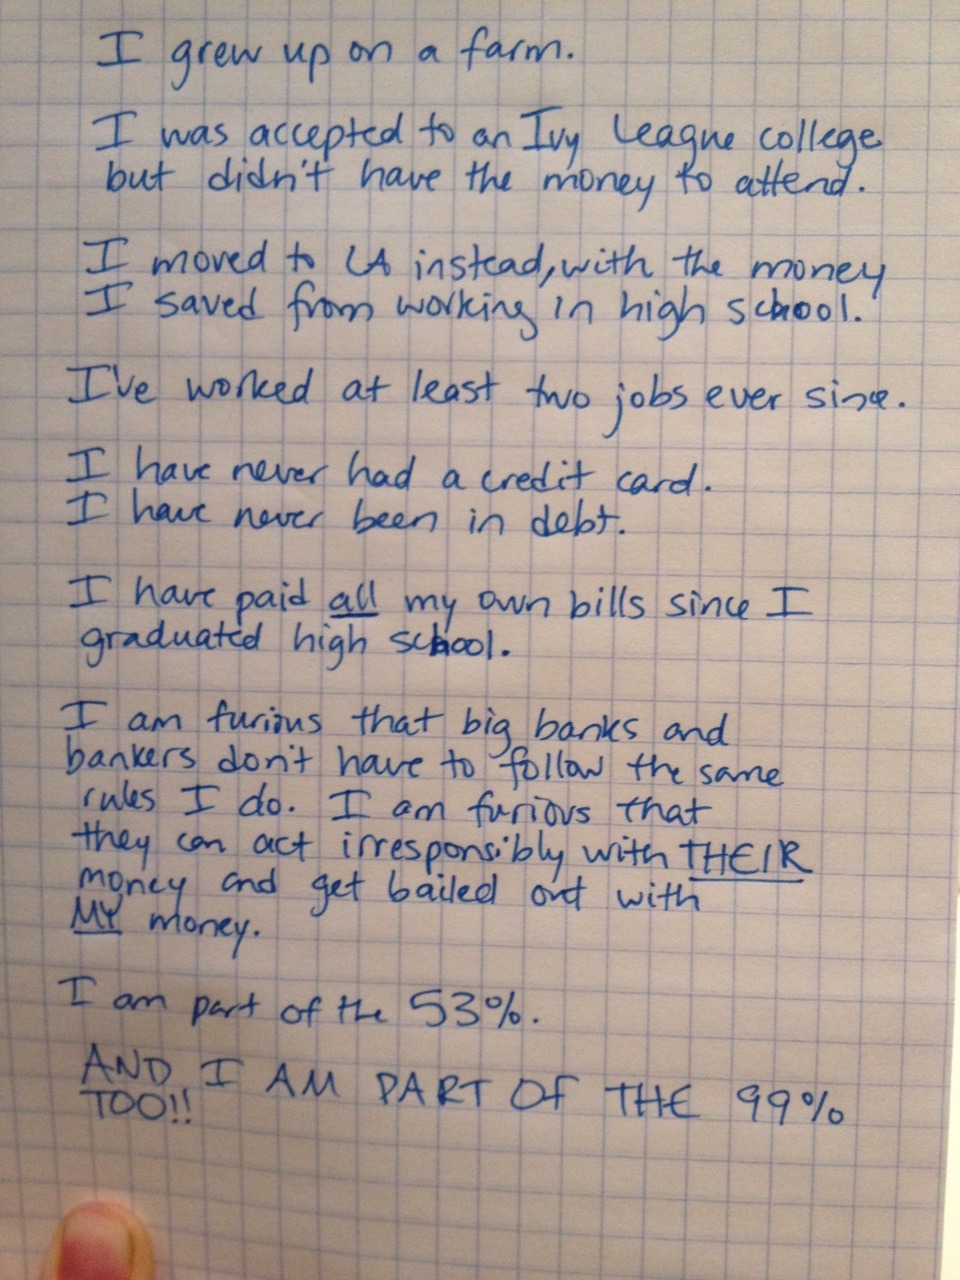 I grew up on a farm.
I was accepted to an Ivy League college
but didn't have the money to attend.
I moved to LA instead, with the money
I saved from working in high school.
I've worked at least two jobs ever since.
I have never had a credit card.
I have never been in debt.
I have paid all my own bills since I
graduated high school.
I am furious that big banks and
bankers don't have to follow the same
rules I do. I am furious that
they can act irresponsibly with THEIR
money and get bailed out with
MY money.
I am part of the 53%.
AND I AM PART OF THE 99%
TOO!!